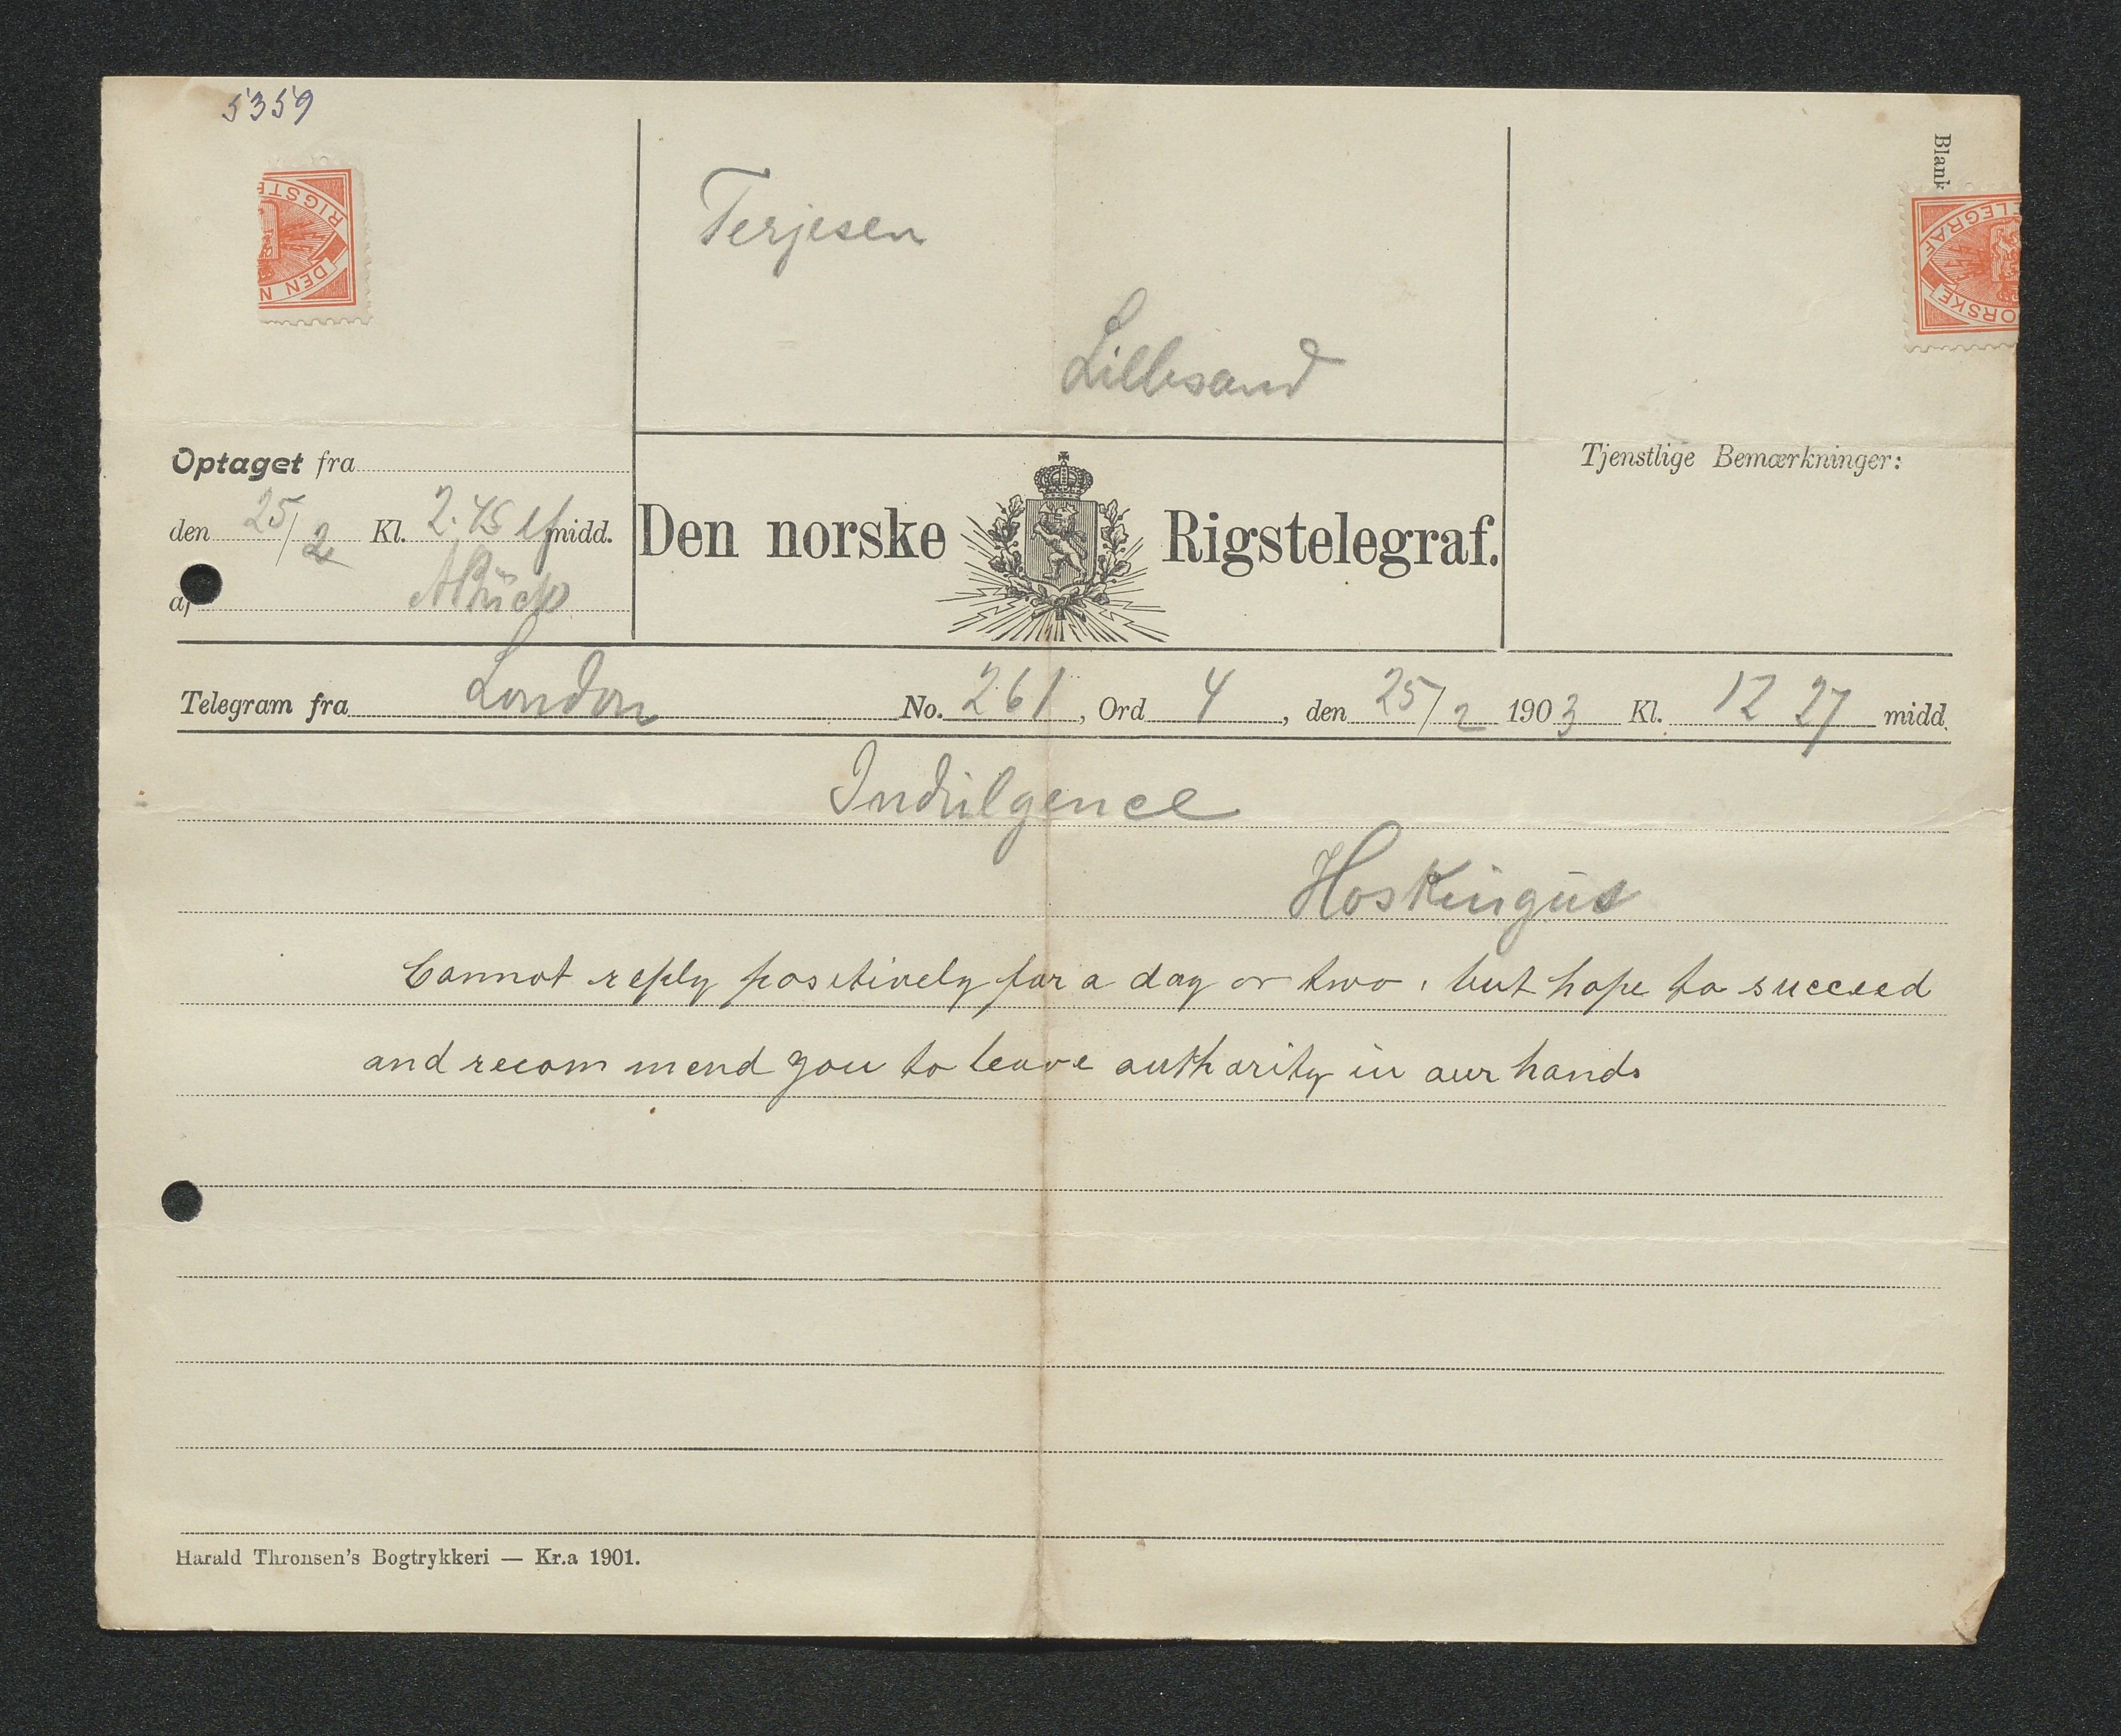 5359
Terjesen
Lillesand
Blank
RIGSTE
DEN N
TELEGRAF
ORSKE
Optaget fra
den 25/2 Kl. 2.45 efmidd.
af
Tjenstlige Bemærkninger:
Den norske Rigstelegraf.
Telegram fra London No. 261, Ord 4, den 25/2 1903 Kl. 12 27 midd.
Indulgence
Hoskingus
Cannot reply positively for a day or two, but hope to succeed
and recommend you to leave authority in our hands
Harald Thronsen's Bogtrykkeri — Kr.a 1901.